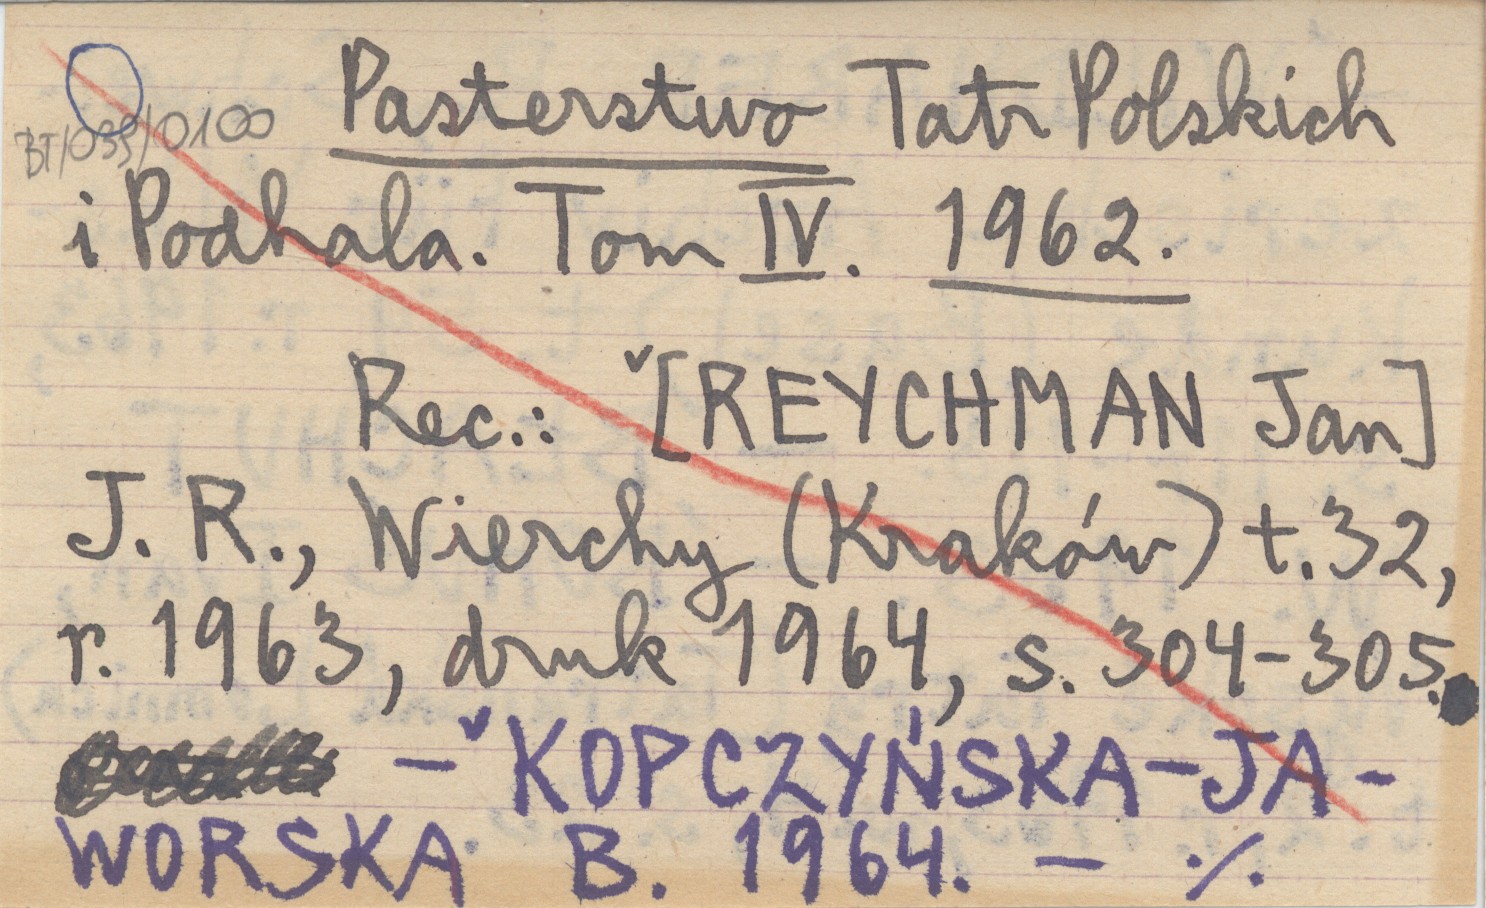 BT/039/0100
Pasterstwo Tatr Polskich
i Podhala. Tom IV. 1962.
Rec.: ˇ[REYCHMAN Jan]
J. R., Wierchy (Kraków) t. 32,
r. 1963, druk 1964, s. 304-305.
– ˇKOPCZYŃSKA-JA-
WORSKA B. 1964. – ·/.